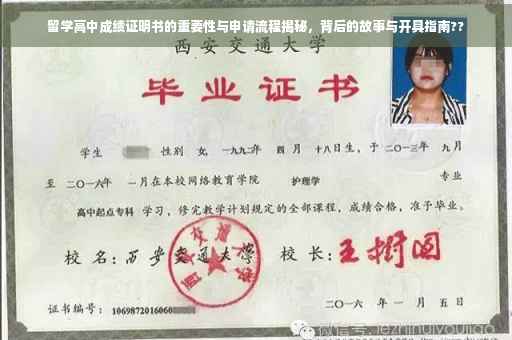 留学高中成绩证明书的重要性与申请流程揭秘，背后的故事与开具指南??
西安交通大学
毕业证书
学生 性别 女，一九九二年 四月 十八日生，于二〇一三年 九月
至 二〇一六年 一月在本校网络教育学院 护理学 专业
高中起点专科 学习，修完教学计划规定的全部课程，成绩合格，准予毕业。
校 名：西安交通大学 校 长：王树国
西安交通大学
证书编号：1069872016060
二〇一六 年 一 月 五 日
微信号: jezhinuiyoujiao